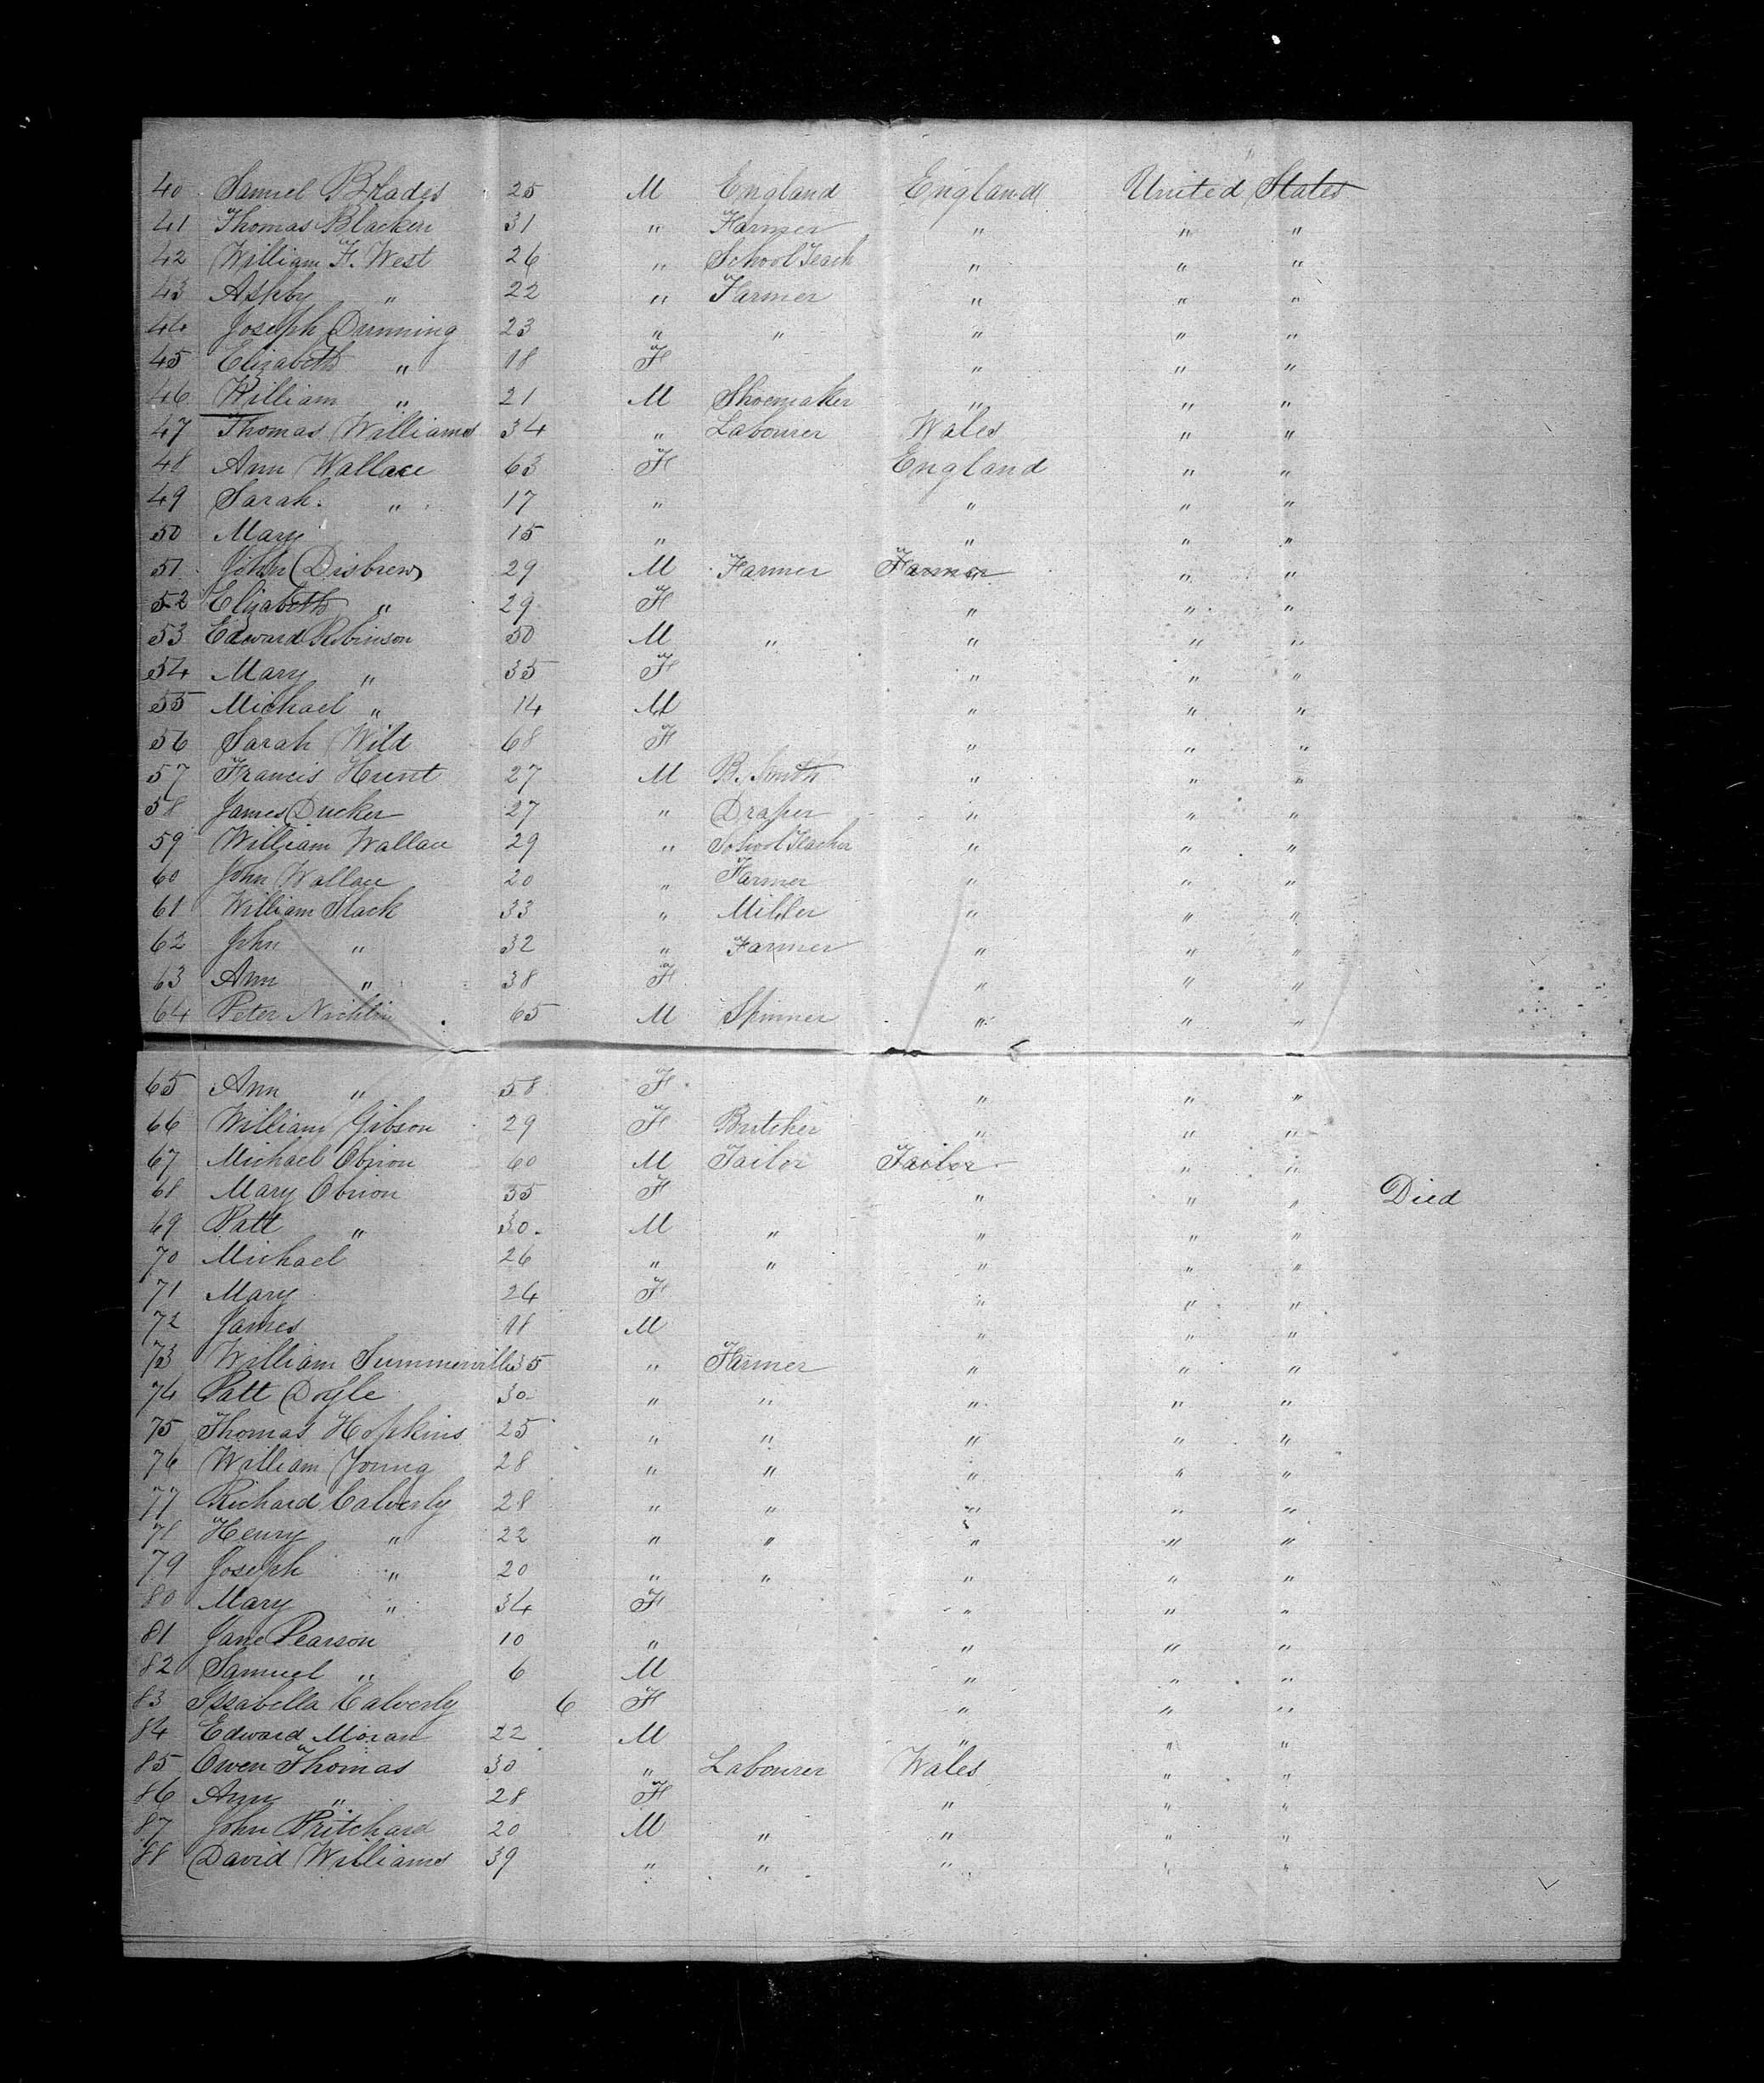 40 Samuel Blades 25 M England England United States
41 Thomas Blacken 31 " Farmer " " "
42 William F. West 26 " School Teach " " "
43 Asphy " 22 " Farmer " " "
44 Joseph Dunning 23 " " " " "
45 Elizabeth " 18 F " " "
46 William " 21 M Shoemaker " " "
47 Thomas Williams 34 " Labourer Wales " "
48 Ann Wallace 63 F England " "
49 Sarah " 17 " " " "
50 Mary 15 " " " "
51 John Disbrew 29 M Farmer Farmer " "
52 Elizabeth " 29 F " " "
53 Edward Robinson 50 M " " " "
54 Mary " 35 F " " "
55 Michael " 14 M " " "
56 Sarah Wild 68 F " " "
57 Francis Hunt 27 M B. Smith " " "
58 James Ducker 27 " Draper " " "
59 William Wallace 29 " School Teacher " " "
60 John Wallace 20 " Farmer " " "
61 William Slack 33 " Miller " " "
62 John " 32 " Farmer " " "
63 Ann " 38 F " " "
64 Peter Nichlin 65 M Spinner " " "
65 Ann " 58 F " " "
66 William Gibson 29 F Butcher " " "
67 Michael Obrion 60 M Tailor Tailor " "
68 Mary Obrion 55 F " " " Died
69 Patt " 30 M " " " "
70 Michael 26 " " " " "
71 Mary 24 F " " "
72 James 18 M " " "
73 William Summerville 35 " Farmer " " "
74 Patt Doyle 30 " " " " "
75 Thomas Hopkins 25 " " " " "
76 William Young 28 " " " " "
77 Richard Calverly 28 " " " " "
78 Henry " 22 " " " " "
79 Joseph " 20 " " " " "
80 Mary " 34 F " " "
81 Jane Pearson 10 " " " "
82 Samuel " 6 M " " "
83 Issabella Calverly 6 F " " "
84 Edward Moran 22 M " " "
85 Owen Thomas 30 " Labourer Wales " "
86 Ann " 28 F " " "
87 John Pritchard 20 M " " " "
88 David Williams 39 " " " " "